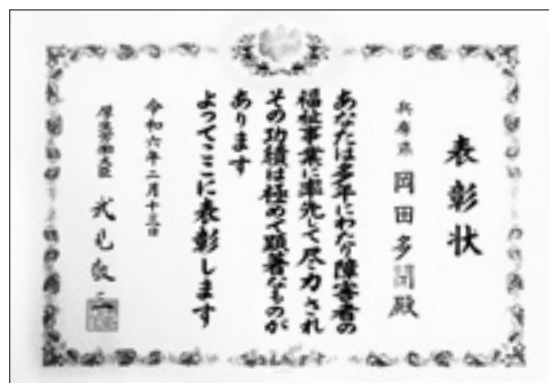 表彰状
兵庫県 岡田多 殿
あなたは多年にわたり障害者の
福祉事業に率先して尽力され
その功績は極めて顕著なものが
あります
よってここに表彰します
令和六年二月十三日
厚生労働大臣 武見敬三